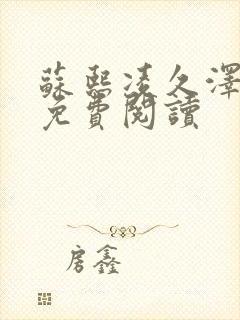 蘇熙凌久澤
免費閱讀
房鑫